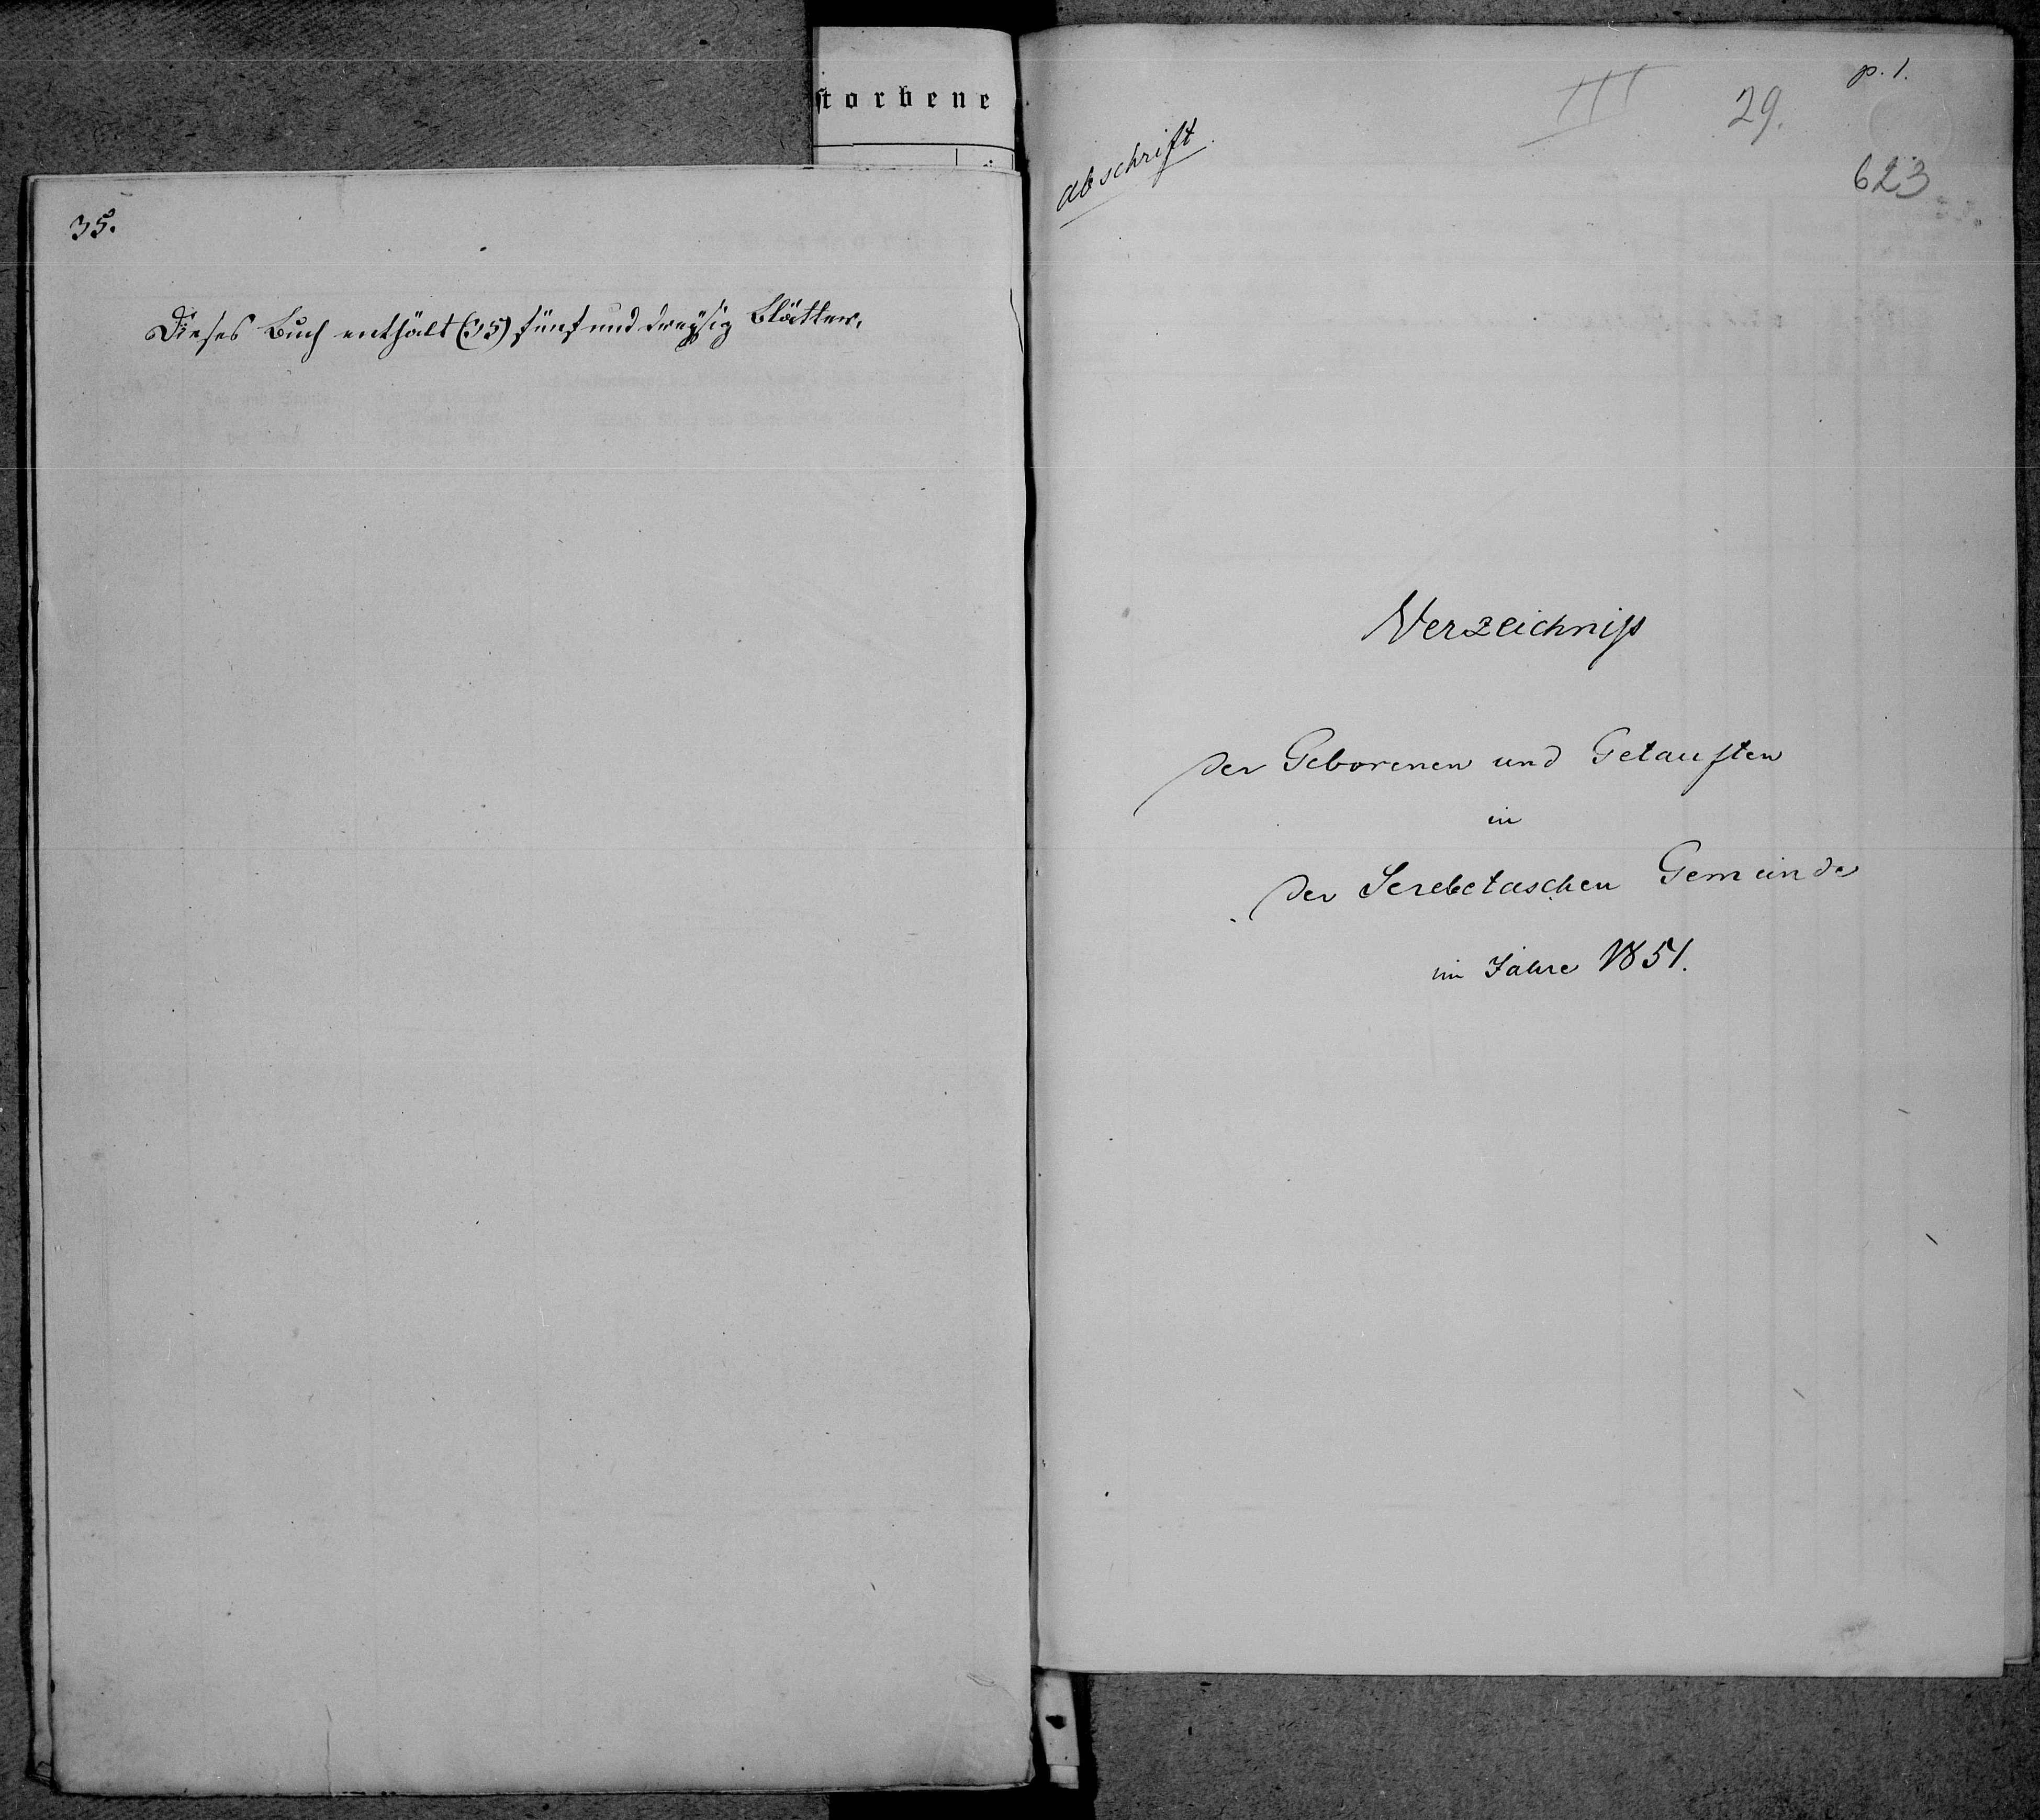 storbene
35.
Dieses Buch enthält (35) fünf und dreyßig Blätter.
p. 1.
III
29.
Abschrift.
623
Verzeichniß
der Geborenen und Getauften
in
der Serebetaschen Gemeinde
im Jahre 1851.